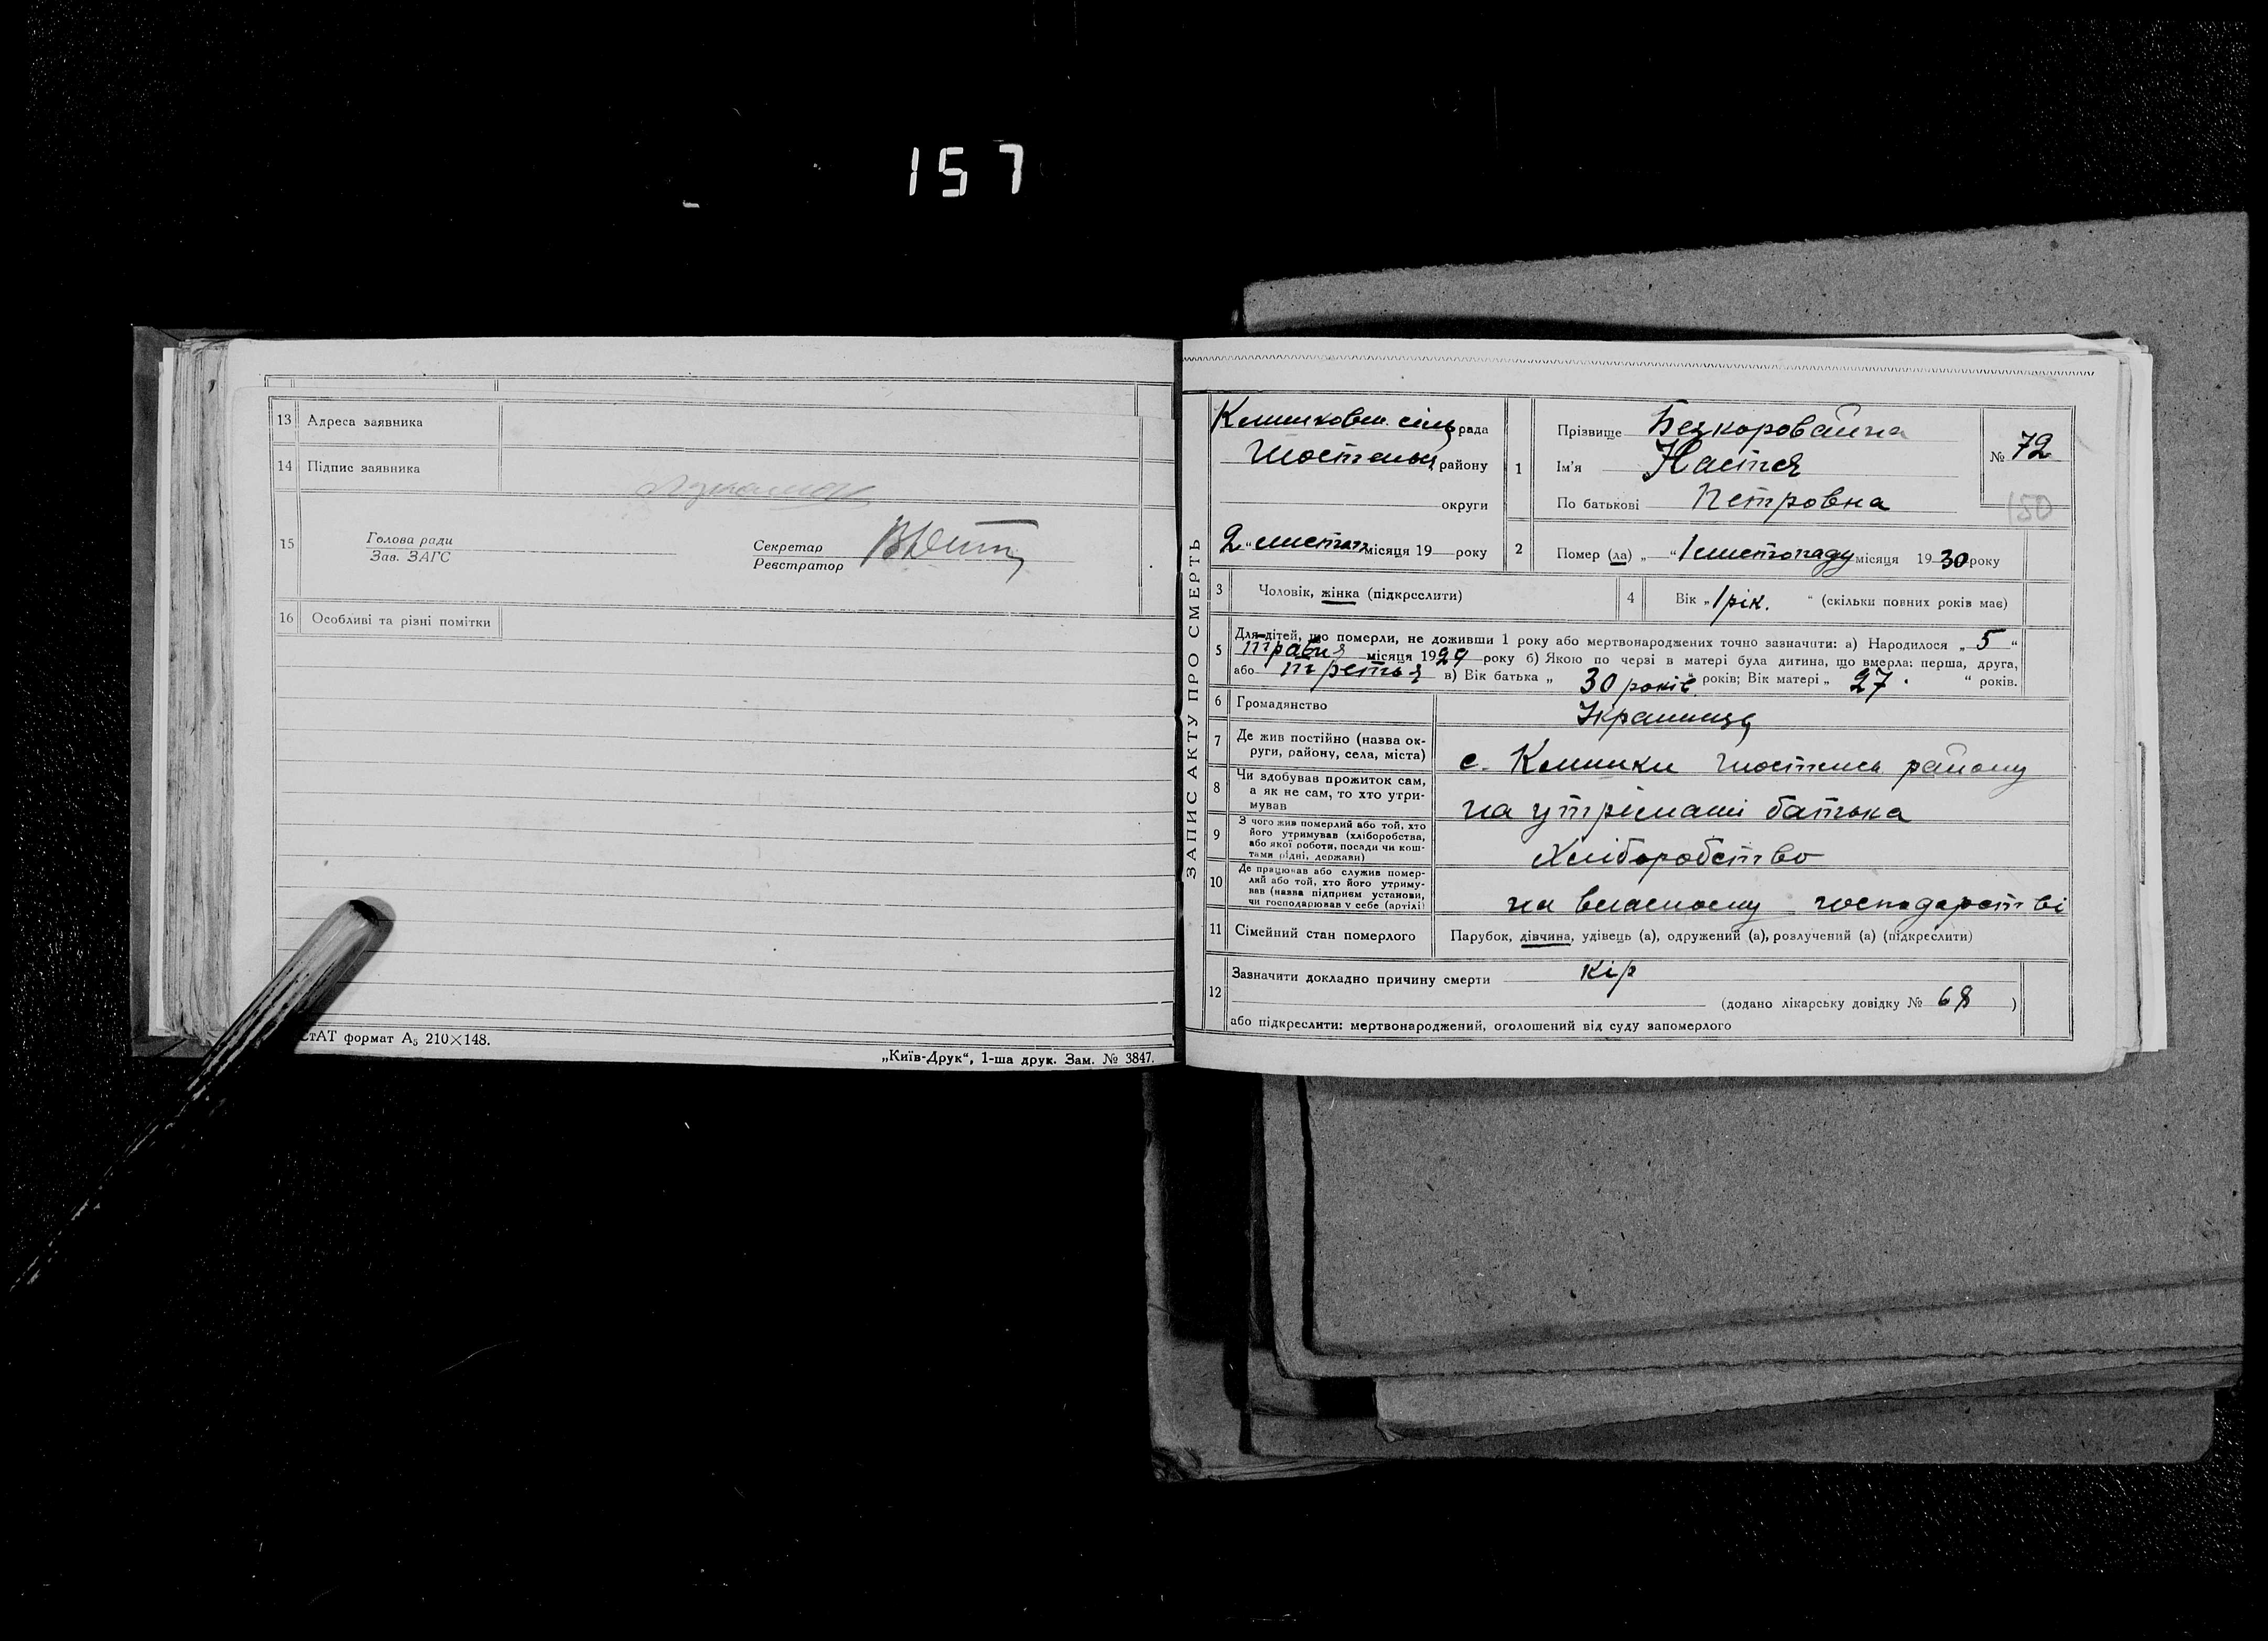 157
13 Адреса заявника
14 Підпис заявника
15 Голова ради
Зав. ЗАГС
Секретар
Реєстратор
16 Особливі та різні помітки
СтАТ формат А₅ 210×148.
„Київ-Друк“, 1-ша друк. Зам. № 3847.
ЗАПИС АКТУ ПРО СМЕРТЬ
Клишковск. сіль рада
Шостенськ району
округи
2 “ листоп місяця 19 року
1 Прізвище Безкоровайна
Ім'я Настя
По батькові Петровна
№ 72
150
2 Помер (ла) „ “ 1 листопаду місяця 19 30 року
3 Чоловік, жінка (підкреслити)
4 Вік „ 1 рік. “ (скільки повних років має)
5 Для дітей, що померли, не доживши 1 року або мертвонароджених точно зазначити: а) Народилося „ 5 “
травня місяця 1929 року б) Якою по черзі в матері була дитина, що вмерла: перша, друга,
або третья в) Вік батька „ 30 років “ років; Вік матері „ 27 “ років.
6 Громадянство
7 Де жив постійно (назва ок-
руги, району, села, міста)
с. Клишки Шостенск району
8 Чи здобував прожиток сам,
а як не сам, то хто утри-
мував
на утріманні батька
9 З чого жив померлий або той, хто
його утримував (хліборобства,
або якої роботи, посади чи кош-
тами рідні, держави)
Хліборобство
10 Де працював або служив помер-
лий або той, хто його утриму-
вав (назва підприєм установи,
чи господарював у себе (артілі)
на власному господарстві
11 Сімейний стан померлого
Парубок, дівчина, удівець (а), одружений (а), розлучений (а) (підкреслити)
12 Зазначити докладно причину смерти кір
(додано лікарську довідку № 68 )
або підкреслити: мертвонароджений, оголошений від суду запомерлого